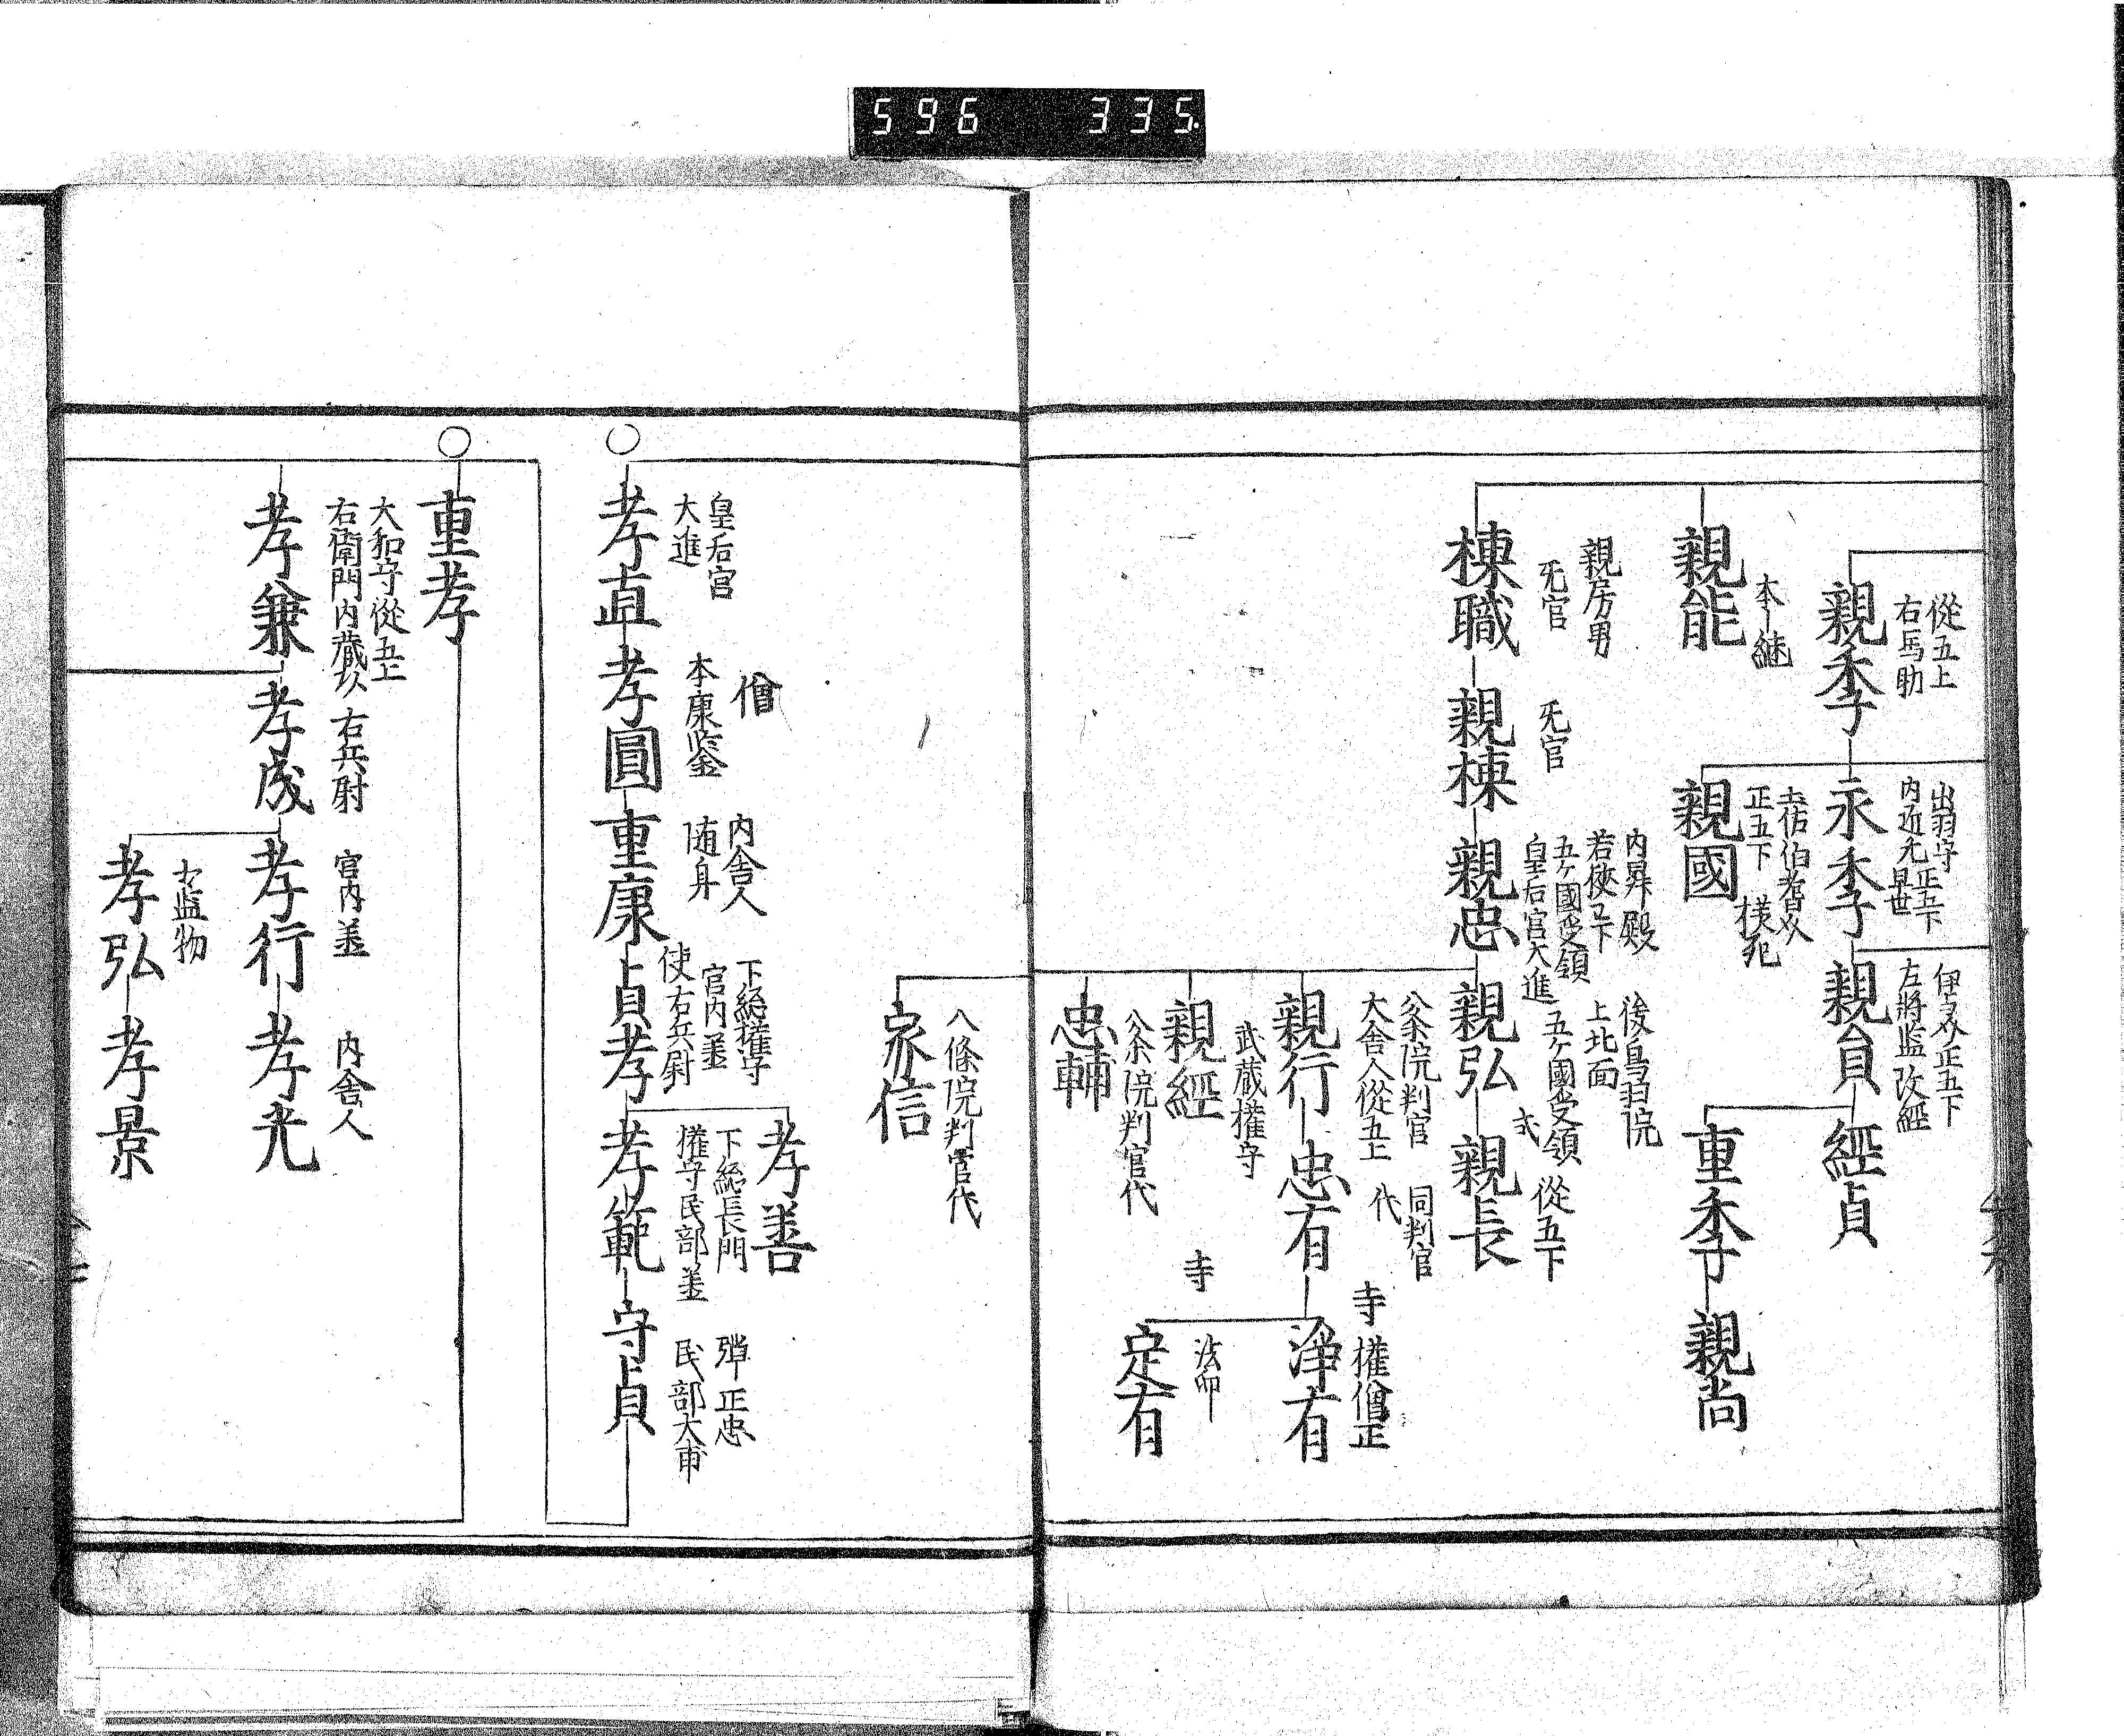 596 335
從五上
右馬助
親季
出羽守正五下
内近尤早世
永季
正五下
左將監改經
親貞
經貞
重季
親尚
親能
本継
親國
正五下 横死
親房男
旡官
棟職
旡官
親棟
内昇殿
若狭已下
五ケ國受領
皇后宮大進
親忠
後鳥羽院
上北面
五ケ國受領
親弘
從五下
親長
公条院判官
大舍人從五上
親行
同判官
代
忠有
寺
權僧正
淨有
寺
法印
定有
武蔵權守
親經
公条院判官代
忠輔
八條院判官代
家信
皇后宮
大進
孝直
僧
本康
孝圓
内舍人
随身
重康
下総權守
宮内丞
使右兵尉
貞孝
孝善
下総長門
權守民部丞
孝範
弾正忠
民部大甫
守貞
重孝
大和守從五上
右衛門内蔵
孝兼
右兵尉
孝成
宮内丞
孝行
内舍人
孝光
監物
孝弘
孝景